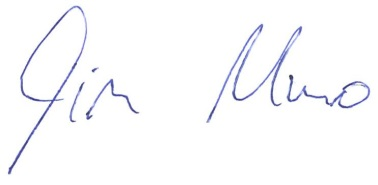 Jim Munro